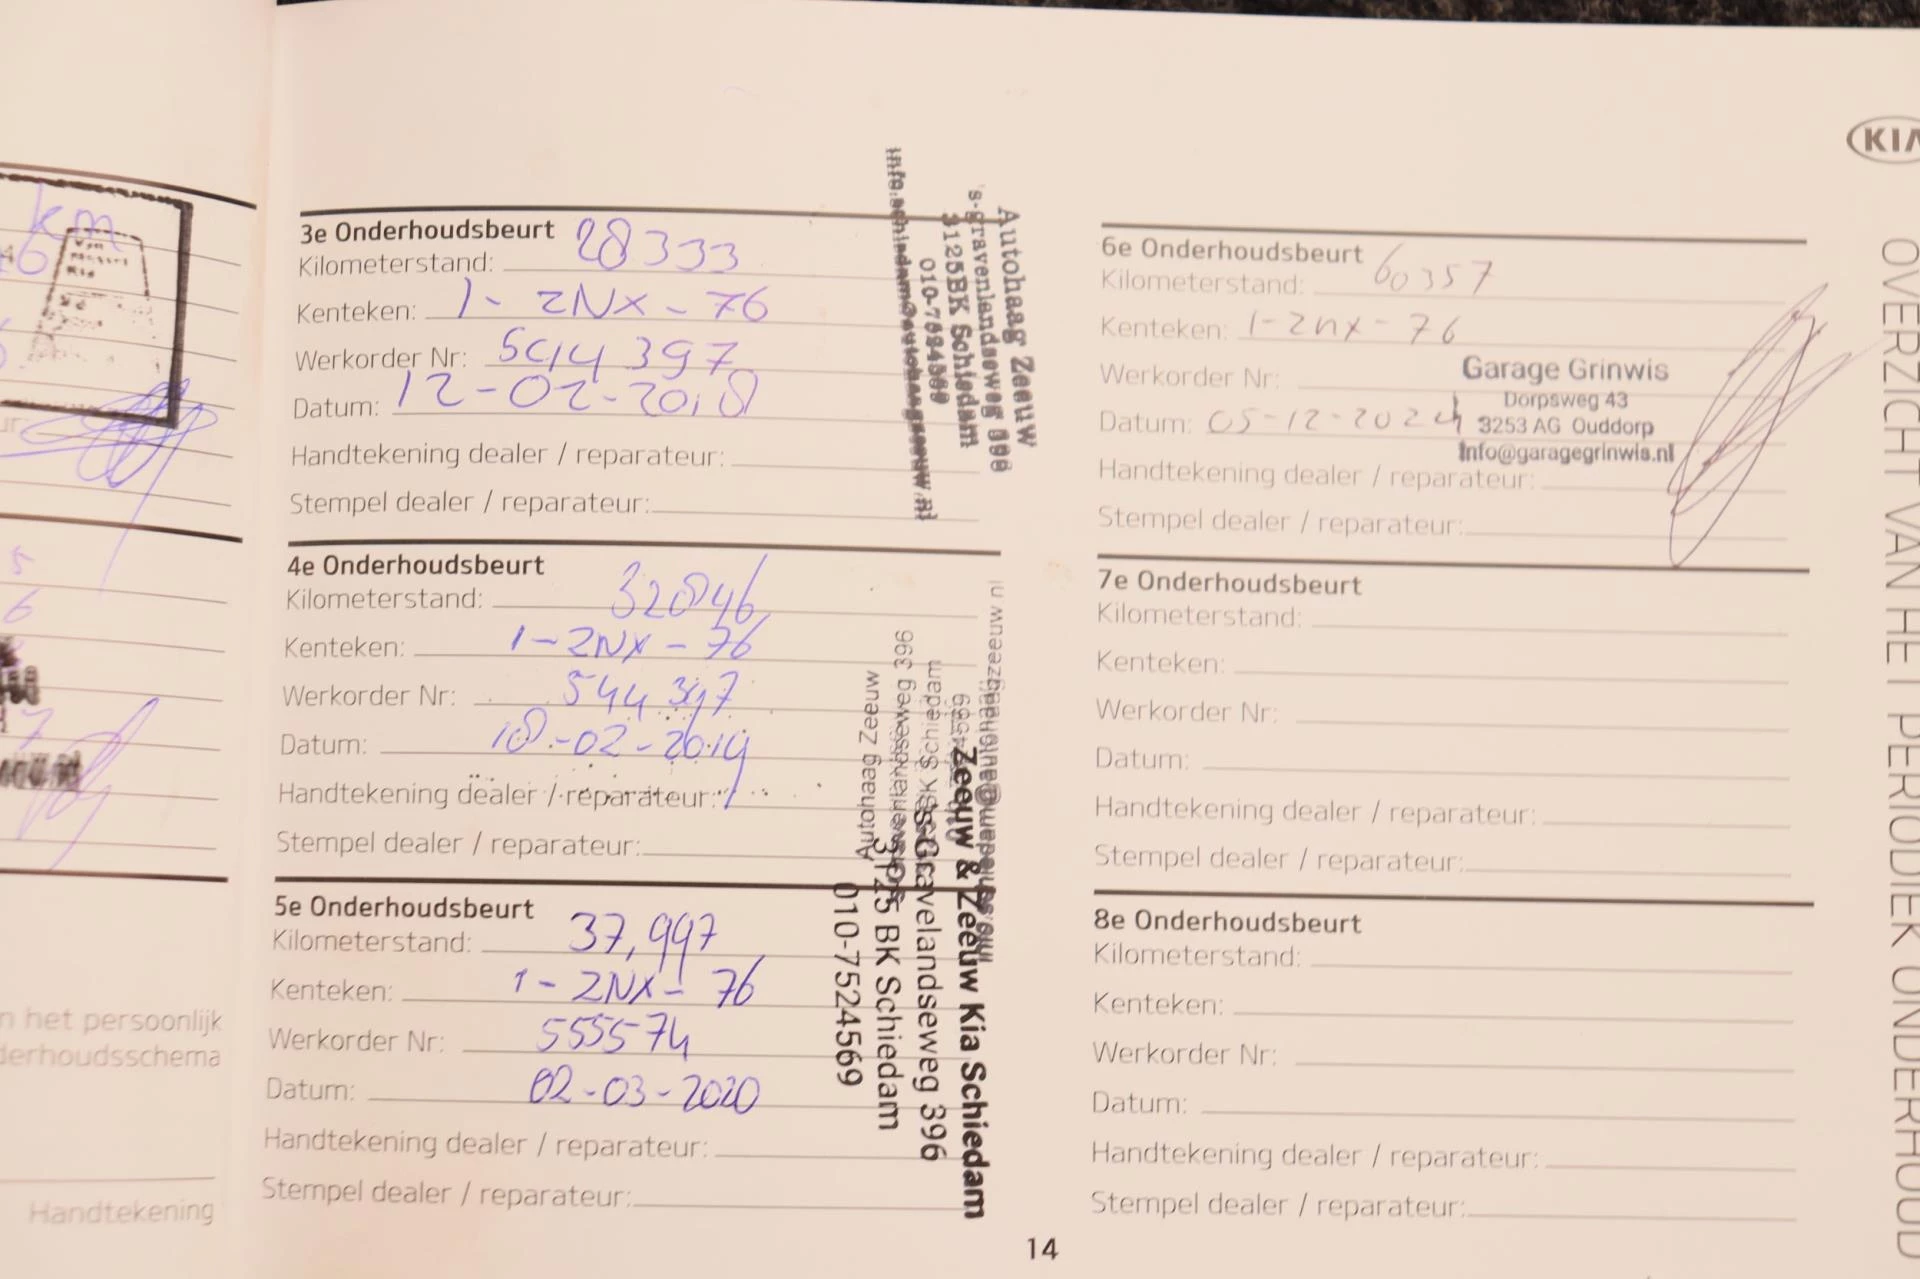 km
n het persoonlijk
derhoudsschema
Handtekening
3e Onderhoudsbeurt
Kilometerstand: 28333
Kenteken: 1- ZNX - 76
Werkorder Nr: 544397
Datum: 12-02-2018
Handtekening dealer / reparateur:
Stempel dealer / reparateur:
Autohaag Zeeuw
's-gravenlandseweg
3125BK Schiedam
4e Onderhoudsbeurt
Kilometerstand: 32846
Kenteken: 1-ZNX - 76
Werkorder Nr: 544397
Datum: 18-02-2019
Handtekening dealer / reparateur:
Stempel dealer / reparateur:
Autohaag Zeeuw
5e Onderhoudsbeurt
Kilometerstand: 37,997
Kenteken: 1 - ZNX - 76
Werkorder Nr: 555574
Datum: 02-03-2020
Handtekening dealer / reparateur:
Stempel dealer / reparateur:
Zeeuw & Zeeuw Kia Schiedam
's-Gravelandseweg 396
3125 BK Schiedam
010-7524569
14
KIA
6e Onderhoudsbeurt
Kilometerstand: 60357
Kenteken: 1-znx-76
Werkorder Nr:
Datum: 05-12-2024
Handtekening dealer / reparateur:
Stempel dealer / reparateur:
Garage Grinwis
Dorpsweg 43
3253 AG Ouddorp
info@garagegrinwis.nl
7e Onderhoudsbeurt
Kilometerstand:
Kenteken:
Werkorder Nr:
Datum:
Handtekening dealer / reparateur:
Stempel dealer / reparateur:
8e Onderhoudsbeurt
Kilometerstand:
Kenteken:
Werkorder Nr:
Datum:
Handtekening dealer / reparateur:
Stempel dealer / reparateur:
OVERZICHT VAN HET PERIODIEK ONDERHOUD